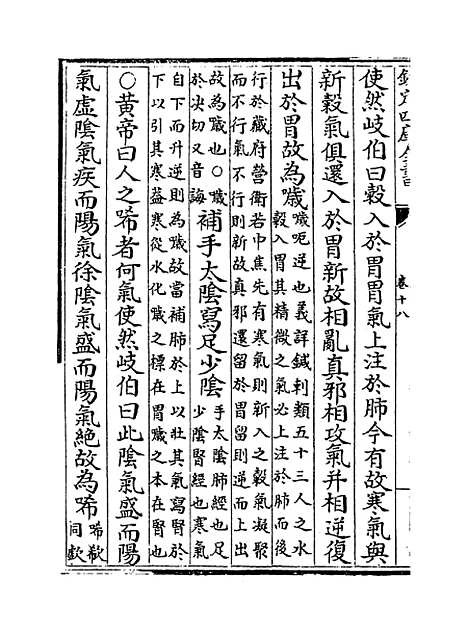 欽定四庫全書
卷十八
使然岐伯曰穀入於胃胃氣上注於肺今有故寒氣與
新穀氣俱還入於胃新故相亂真邪相攻氣并相逆復
出於胃故為噦
噦呃逆也義詳鍼刺類五十三人之水
穀入胃其精微之氣必上注於肺而後
行於藏府營衛若中焦先有寒氣則新入之穀氣凝聚
而不行氣不行則新故真邪還留於胃留則逆而上出
故為噦也○噦
於決切又音誨
補手太陰寫足少陰
手太陰肺經也足
少陰腎經也寒氣
自下而升逆則為噦故當補肺於上以壯其氣寫腎於
下以引其寒蓋寒從水化噦之標在胃噦之本在腎也
○黃帝曰人之唏者何氣使然岐伯曰此陰氣盛而陽
氣虛陰氣疾而陽氣徐陰氣盛而陽氣絕故為唏
唏欷
同